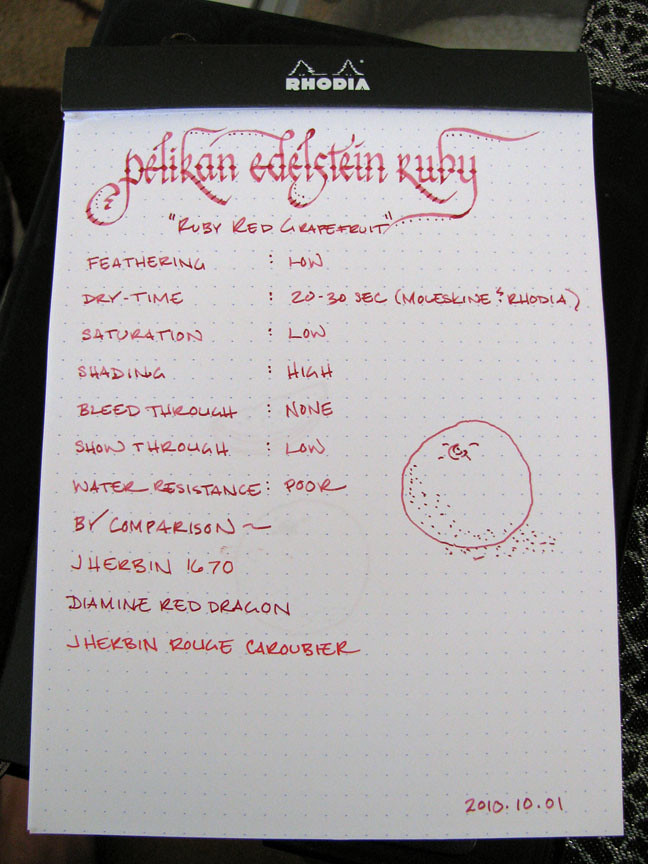 RHODIA
pelikan edelstein ruby
"RUBY RED GRAPEFRUIT"
FEATHERING : LOW
DRY-TIME : 20-30 SEC (MOLESKINE & RHODIA)
SATURATION : LOW
SHADING : HIGH
BLEED THROUGH : NONE
SHOW THROUGH : LOW
WATER RESISTANCE : POOR
BY COMPARISON ~
J HERBIN 1670
DIAMINE RED DRAGON
J HERBIN ROUGE CAROUBIER
2010.10.01